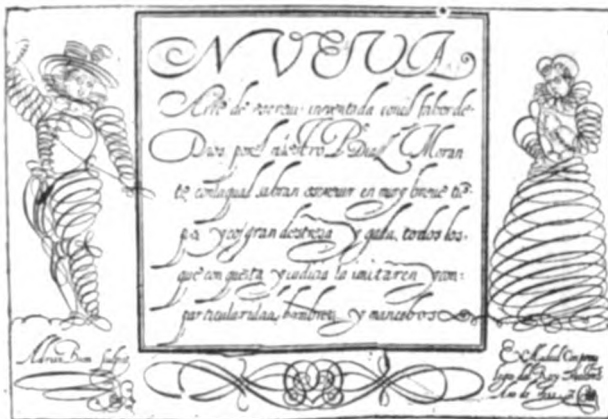 NUEUA
Arte de escreuir inventada con el fabor de
Dios por el maestro Po Diaz Moran
te, con la qual sabran escreuir en muy breue tiẽ
po, y con gran destreza y gala, todos los
que con gusta y cudicia la imitaren y con
particularidad, hombres, y mancebos
Adrian Boon sculpsit
En Madrid Con priui
legio del Rey
Ano de